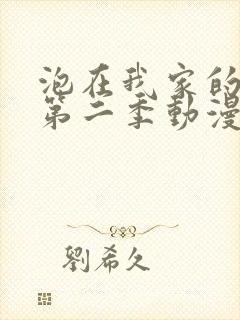 泡在我家的
第二季動漫
劉希久